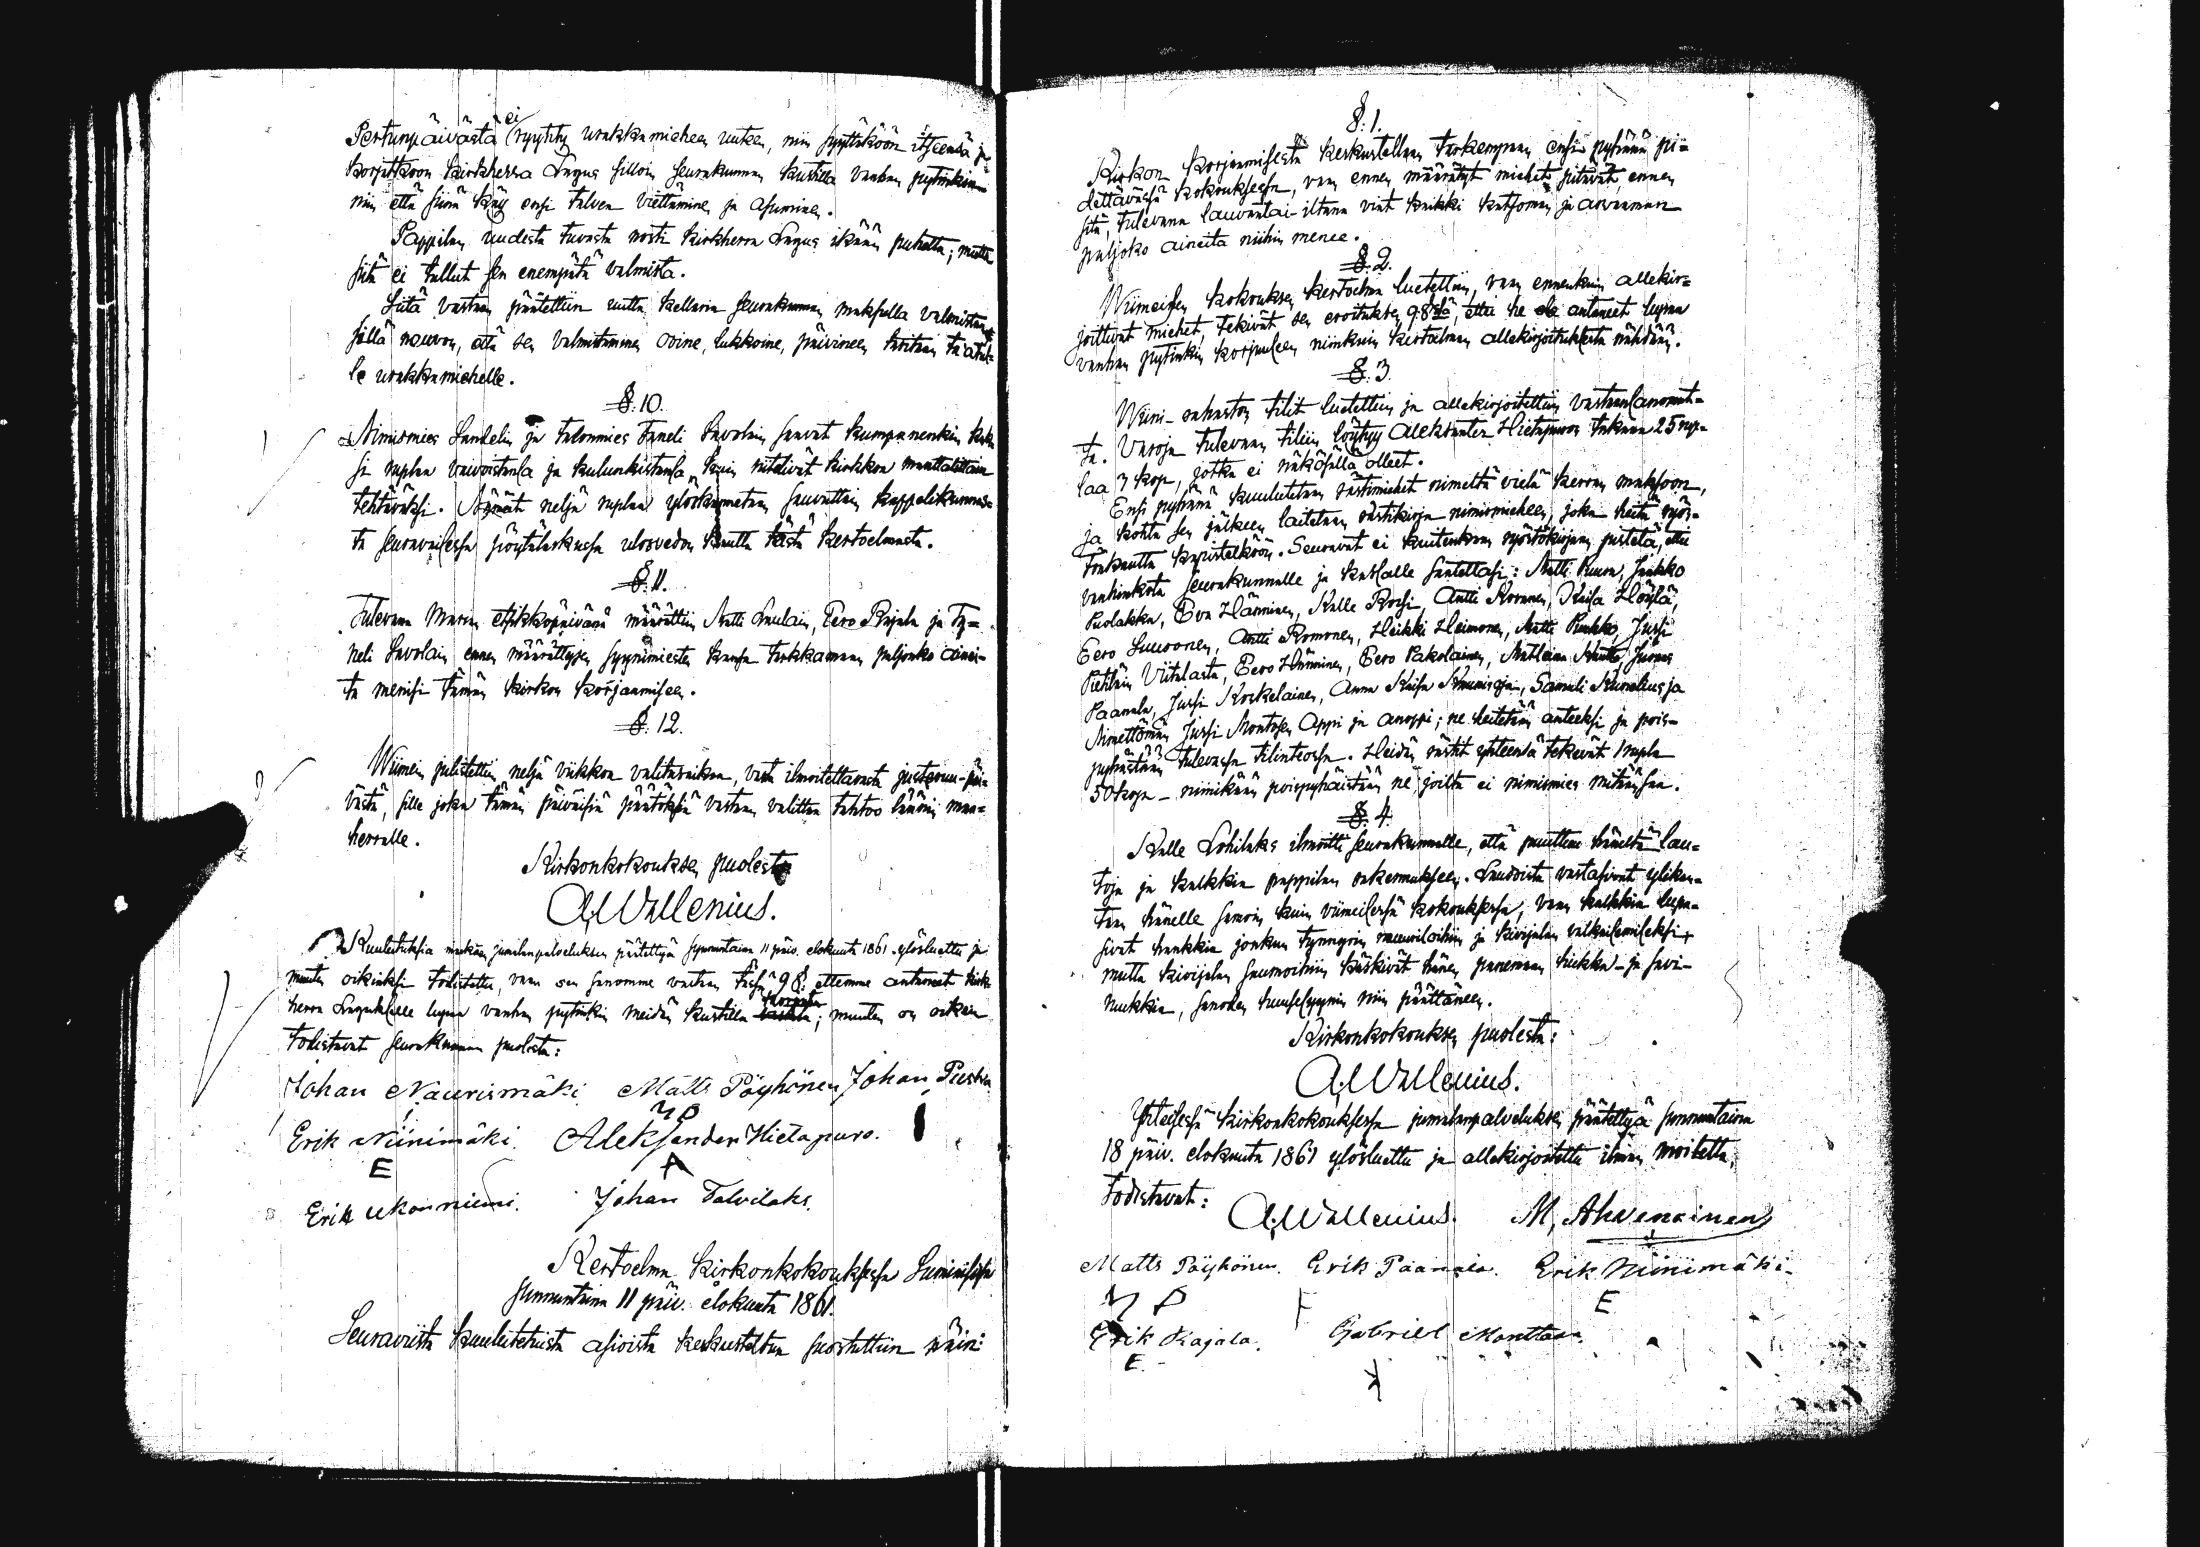 Perttunpäivästä ei ryyhty urakkamiehen uuteen, niin pyyttäköön itseensä ja
korjatkoon kirkkoherra Lagus silloin seurakunnan kustilla vanhan pytinkin
niin että siinä käy ensi talven viettäminen ja asuminen.
Pappilan uudesta tuvasta nosti kirkherra Lagus ikään puhetta; mutta
siitä ei tullut sen enempätä valmista.
Sitä vastaan päätettiin uutta kellaria seurakunnan maksulla valmistaa
sillä neuvon, että sen valmistaminen ovine, lukkoine, päivineen
le urakkamiehelle.
§. 10.
Nimismies Sandelin ja talonmies Taneli Savolain saavat kumpanenkin kaksi
si ruplaa vaivoistansa ja kulunkistansa, kuin kirkkoa
tehtäväksi. Nämät neljä ruplaa ylöskannetaan kappelikunnas-
ta seuraavassa pöytäluskussa ulosvedon kautta tästä kertoelmasta.
§. 11.
Tulevana Maanan määrättiin Matti Laulain, Eero Rajala ja Ta-
neli Savolain ennen määrättyjen syynimiesten kanssa tarkkaamaan paljonko ainei-
ta menisi tämän kirkon korjaamiseen.
§. 12.
Wiimein julistettiin neljä viikkoa valitusaikaa, vasta ilmoitettavasta päi-
västä, sille joka tämän päiväisiä päätöksiä vastaan valittaa tahtoo läänin maa-
herralle.
Kirkonkokouksen puolesta
A. Wallenius.
Kuulutuksia mukaan jumalanpalveluksen päätettyä sunnuntaina 11 päiv. elokuuta 1861 ylösluettu ja
muuten oikiaksi todistettu, vaan sen sanomme vastaan tässä 9 §: ettemme antaneet kirk
herra Laguksella lupaa vanhan pytinkin meidän kustilla korjata; muuten on oikein
todistavat seurakunnan puolesta:
Johan Naurismäki Matts Pöyhönen Johan
M P
Erik Niinimäki. Aleksander Hietapuro.
E A
Erik Ukonniemi. Johan Talvilaks.
Kertoelma kirkonkokouksessa Sumiaisissa
sunnuntaina 11 päiv. elokuuta 1861.
Seuraavista kuulutetuista asioista keskusteltua suostuttiin näin:
§. 1.
Kirkon korjaamisesta keskustellaan tarkempaan ensi pyhänä pi=
dettävässä kokouksessa, vaan ennen määrätyt miehet pitävät ennen
sitä, tulevana lauvantai-iltana vielä kaikki katsoman ja arvaaman
paljoko aineita niihin menee.
§. 2.
Wiimeisen kokouksen kertoelma luettiin, vaan ennenkuin allekir=
joittivat miehet, tekivät sen eroituksen 9 §:stä, ettei he ole antaneet lupaa
vanhan pytinkin korjauksen niinkuin kertoelman allekirjoituksesta nähdään.
§. 3.
Wiini-rahaston tilit luettiin ja allekirjoitettiin vastaansanomat-
ta. Varoja tulevaan tiliin löytyy Aleksanter Hietapuron takana 25 rup-
laa 3 kop, jotka ei näkösällä olleet.
Ensi pyhänä kuulutetaan rästimiehet nimeltä vielä kerran maksoon,
ja kohta sen jälkeen laitetaan rästikirja nimismiehen, joka heitä ryös-
tönkautta karistelköön. Seuraavat ei kuitenkaan ryöstökirjaan pisteta, ettei
vanhinkota seurakunnalle ja kassalle saatettasi: Matti Ruuna, Jaakko
Puolakka, Eva Hänninen, Kalle Rossi, Antti Koronen, Kaisa Höylä,
Eero Suuronen, Antti Romonen, Heikki Heimonen, Matti Jussi
Pietiläin Viitalasta, Eero Hänninen, Eero Pakolainen, Matleena
Paanala, Jussi Korkelainen, Anna Kaisa Samuli Kuneliusja
Nimettömän Jussi Montosen Appi ja anoppi; ne heitetään anteeksi ja pois-
pyhästään tulevassa tilinteossa. Heidän rästit yhteensä tekevät 1 rupla
50 kopa – niinikään poispyhäistään ne, joilta ei nimismies mitään saa.
§. 4.
Kalle Lohilaks ilmoitti seurakunnalle, että puuttuu häneltä lau-
toja ja kalkkia pappilan rakennukseen. Laudoista vastasivat
tan hänelle samoin kuin viimeisessä kokouksessa, vaan kalkkia lupa-
sivat hankkia jonkun tynnyrin muuriloihin ja kivijalan valkaisemiseksi,
mutta kivijalan saumoihin käskivät hänen paneman hiekka- ja savi-
ruukkia, sanoden huusesyynin niin päättäneen.
Kirkonkokouksen puolesta:
A. Wallenius.
Yhteisessä kirkonkokouksessa jumalanpalveluksen päätettyä sunnuntaina
18 päiv. elokuuta 1861 ylösluettu ja allekirjoitettu ilman moitetta,
todistavat:
A. Wallenius. M. Ahvenainen
Matts Pöyhönen. Erik Paanala. Erik Niinimäki.
M P E
Erik Rajala. Gabriel Manttan.
E.